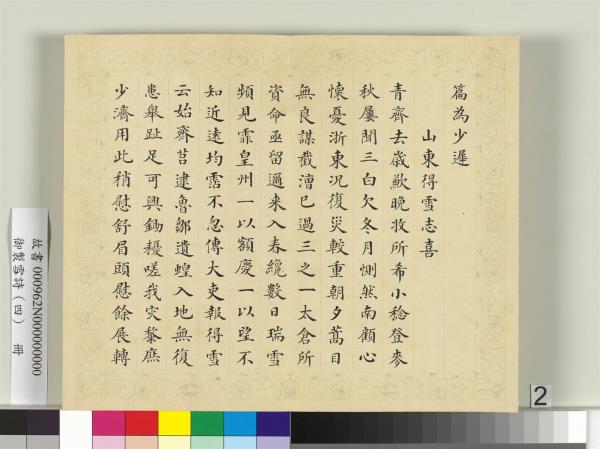 篇為少遲
山東得雪志喜
青齊去歲歉晚收所希小稔登麥
秋屢聞三白欠冬月惻然南顧心
懍憂浙東況復災較重朝夕蒿目
無良謀截漕已過三之一太倉所
資命亟留邇來入春纔數日瑞雪
頻見霏皇州一以額慶一以望不
知近遠均霑不忽傳大吏報得雪
云始齊莒逮魯鄒遺蝗入地無復
患舉趾足可興鋤耰嗟我災黎庶
少濟用此稍慰舒眉頭慰餘展轉
故書000962N000000000
御製雪詩(四) 冊
2